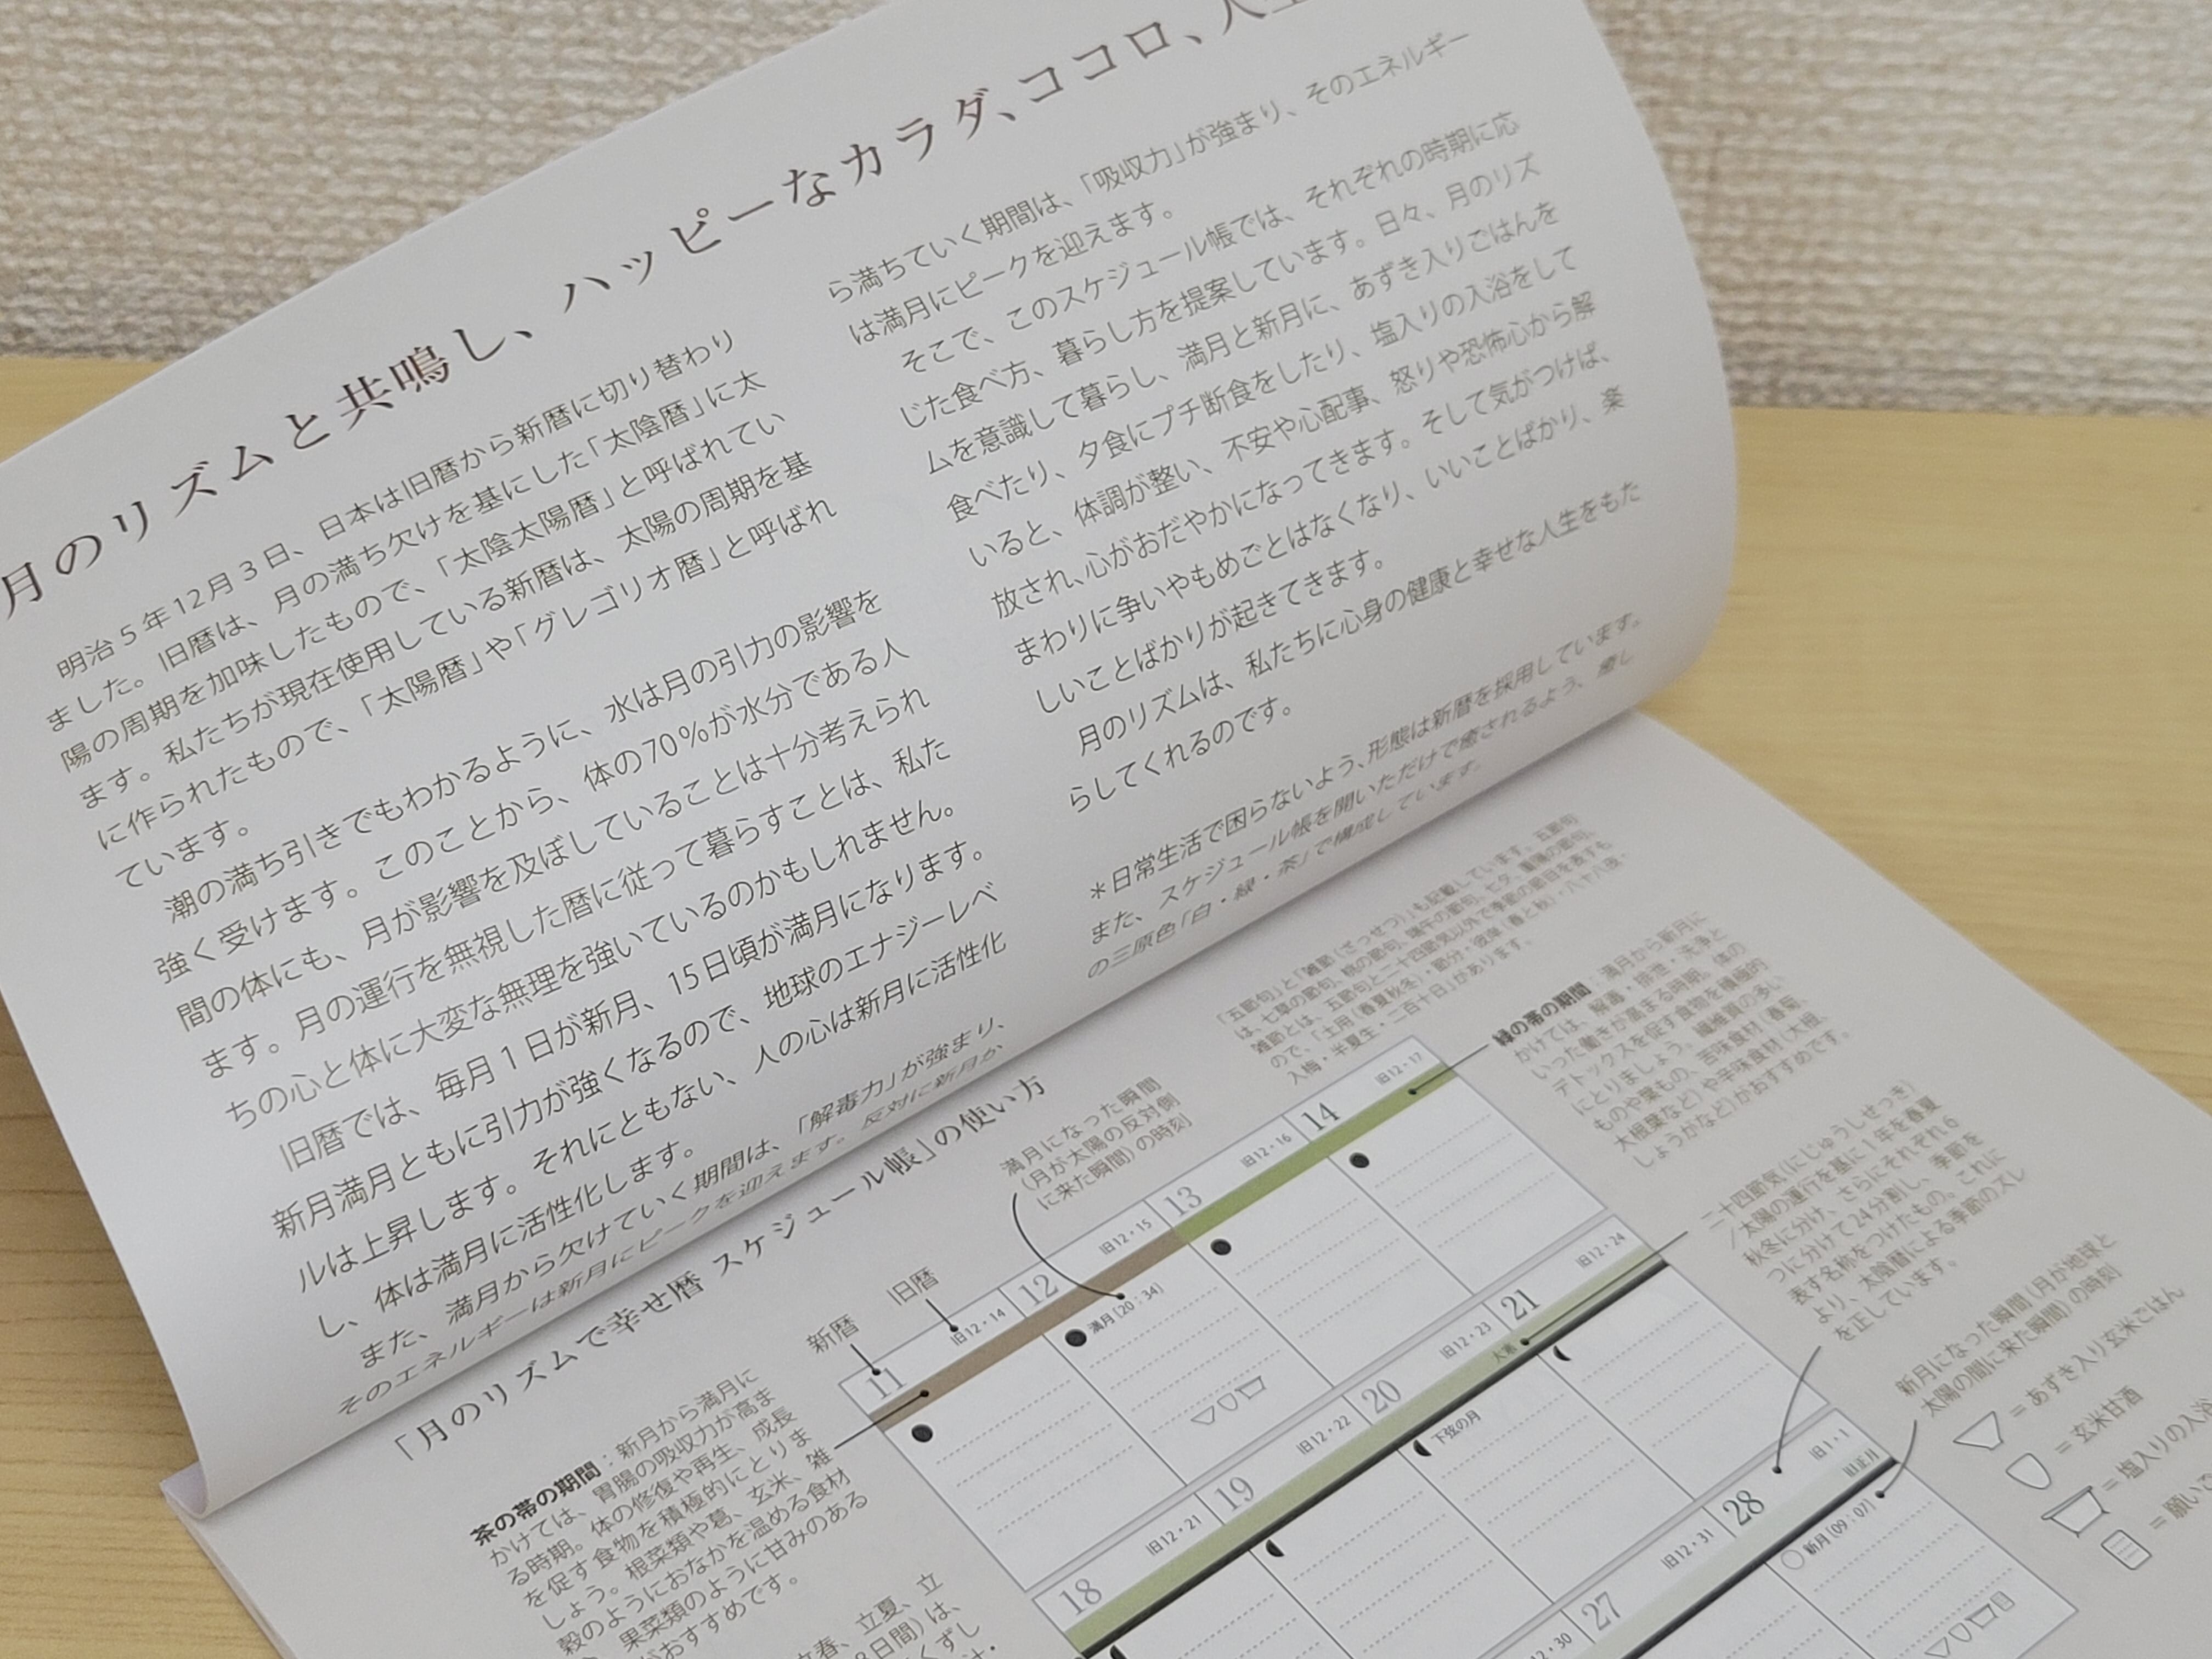 月のリズムと共鳴し、ハッピーなカラダ、ココロ、人生
明治５年12月３日、日本は旧暦から新暦に切り替わり
ました。旧暦は、月の満ち欠けを基にした「太陰暦」に太
陽の周期を加味したもので、「太陰太陽暦」と呼ばれてい
ます。私たちが現在使用している新暦は、太陽の周期を基
に作られたもので、「太陽暦」や「グレゴリオ暦」と呼ばれ
ています。
潮の満ち引きでもわかるように、水は月の引力の影響を
強く受けます。このことから、体の70％が水分である人
間の体にも、月が影響を及ぼしていることは十分考えられ
ます。月の運行を無視した暦に従って暮らすことは、私た
ちの心と体に大変な無理を強いているのかもしれません。
旧暦では、毎月１日が新月、15日頃が満月になります。
新月満月ともに引力が強くなるので、地球のエナジーレベ
ルは上昇します。それにともない、人の心は新月に活性化
し、体は満月に活性化します。
また、満月から欠けていく期間は、「解毒力」が強まり、
そのエネルギーは新月にピークを迎えます。反対に新月か
ら満ちていく期間は、「吸収力」が強まり、そのエネルギー
は満月にピークを迎えます。
そこで、このスケジュール帳では、それぞれの時期に応
じた食べ方、暮らし方を提案しています。日々、月のリズ
ムを意識して暮らし、満月と新月に、あずき入りごはんを
食べたり、夕食にプチ断食をしたり、塩入りの入浴をして
いると、体調が整い、不安や心配事、怒りや恐怖心から解
放され、心がおだやかになってきます。そして気がつけば、
まわりに争いやもめごとはなくなり、いいことばかり、楽
しいことばかりが起きてきます。
月のリズムは、私たちに心身の健康と幸せな人生をもた
らしてくれるのです。
＊日常生活で困らないよう、形態は新暦を採用しています。
また、スケジュール帳を開いただけで癒されるよう、癒し
の三原色「白・緑・茶」で構成しています。
「月のリズムで幸せ暦 スケジュール帳」の使い方
茶の帯の期間：新月から満月に
かけては、胃腸の吸収力が高ま
る時期。体の修復や再生、成長
を促す食物を積極的にとりま
しょう。根菜類や葛、玄米、雑
穀のようにおなかを温める食材
果菜類のように甘みのある
おすすめです。
立春、立夏、立
8日間）は、
くずし
新暦
旧暦
満月になった瞬間
（月が太陽の反対側
に来た瞬間）の時刻
「五節句」と「雑節（ざっせつ）」も記載しています。五節句
は、七草の節句、桃の節句、端午の節句、七夕、重陽の節句。
雑節とは、五節句と二十四節気以外で季節の節目を表すも
ので、「土用（春夏秋冬）・節分・彼岸（春と秋）・八十八夜・
入梅・半夏生・二百十日」があります。
緑の帯の期間：満月から新月に
かけては、解毒・排泄・洗浄と
いった働きが高まる時期。体の
デトックスを促す食物を積極的
にとりましょう。繊維質の多い
ものや葉もの、苦味食材（春菊、
大根葉など）や辛味食材（大根、
しょうがなど）がおすすめです。
二十四節気（にじゅうしせっき）
／太陽の運行を基に1年を春夏
秋冬に分け、さらにそれぞれ6
つに分けて24分割し、季節を
表す名称をつけたもの。これに
より、太陰暦による季節のズレ
を正しています。
新月になった瞬間（月が地球と
太陽の間に来た瞬間）の時刻
＝あずき入り玄米ごはん
＝玄米甘酒
＝塩入りの入浴
＝願い
11
旧12・14
12
旧12・15
満月（20：34）
13
旧12・16
14
旧12・17
18
旧12・21
19
旧12・22
20
旧12・23
下弦の月
21
旧12・24
大寒
12・30
27
旧12・31
28
旧1・1
旧正月
新月（09：07）